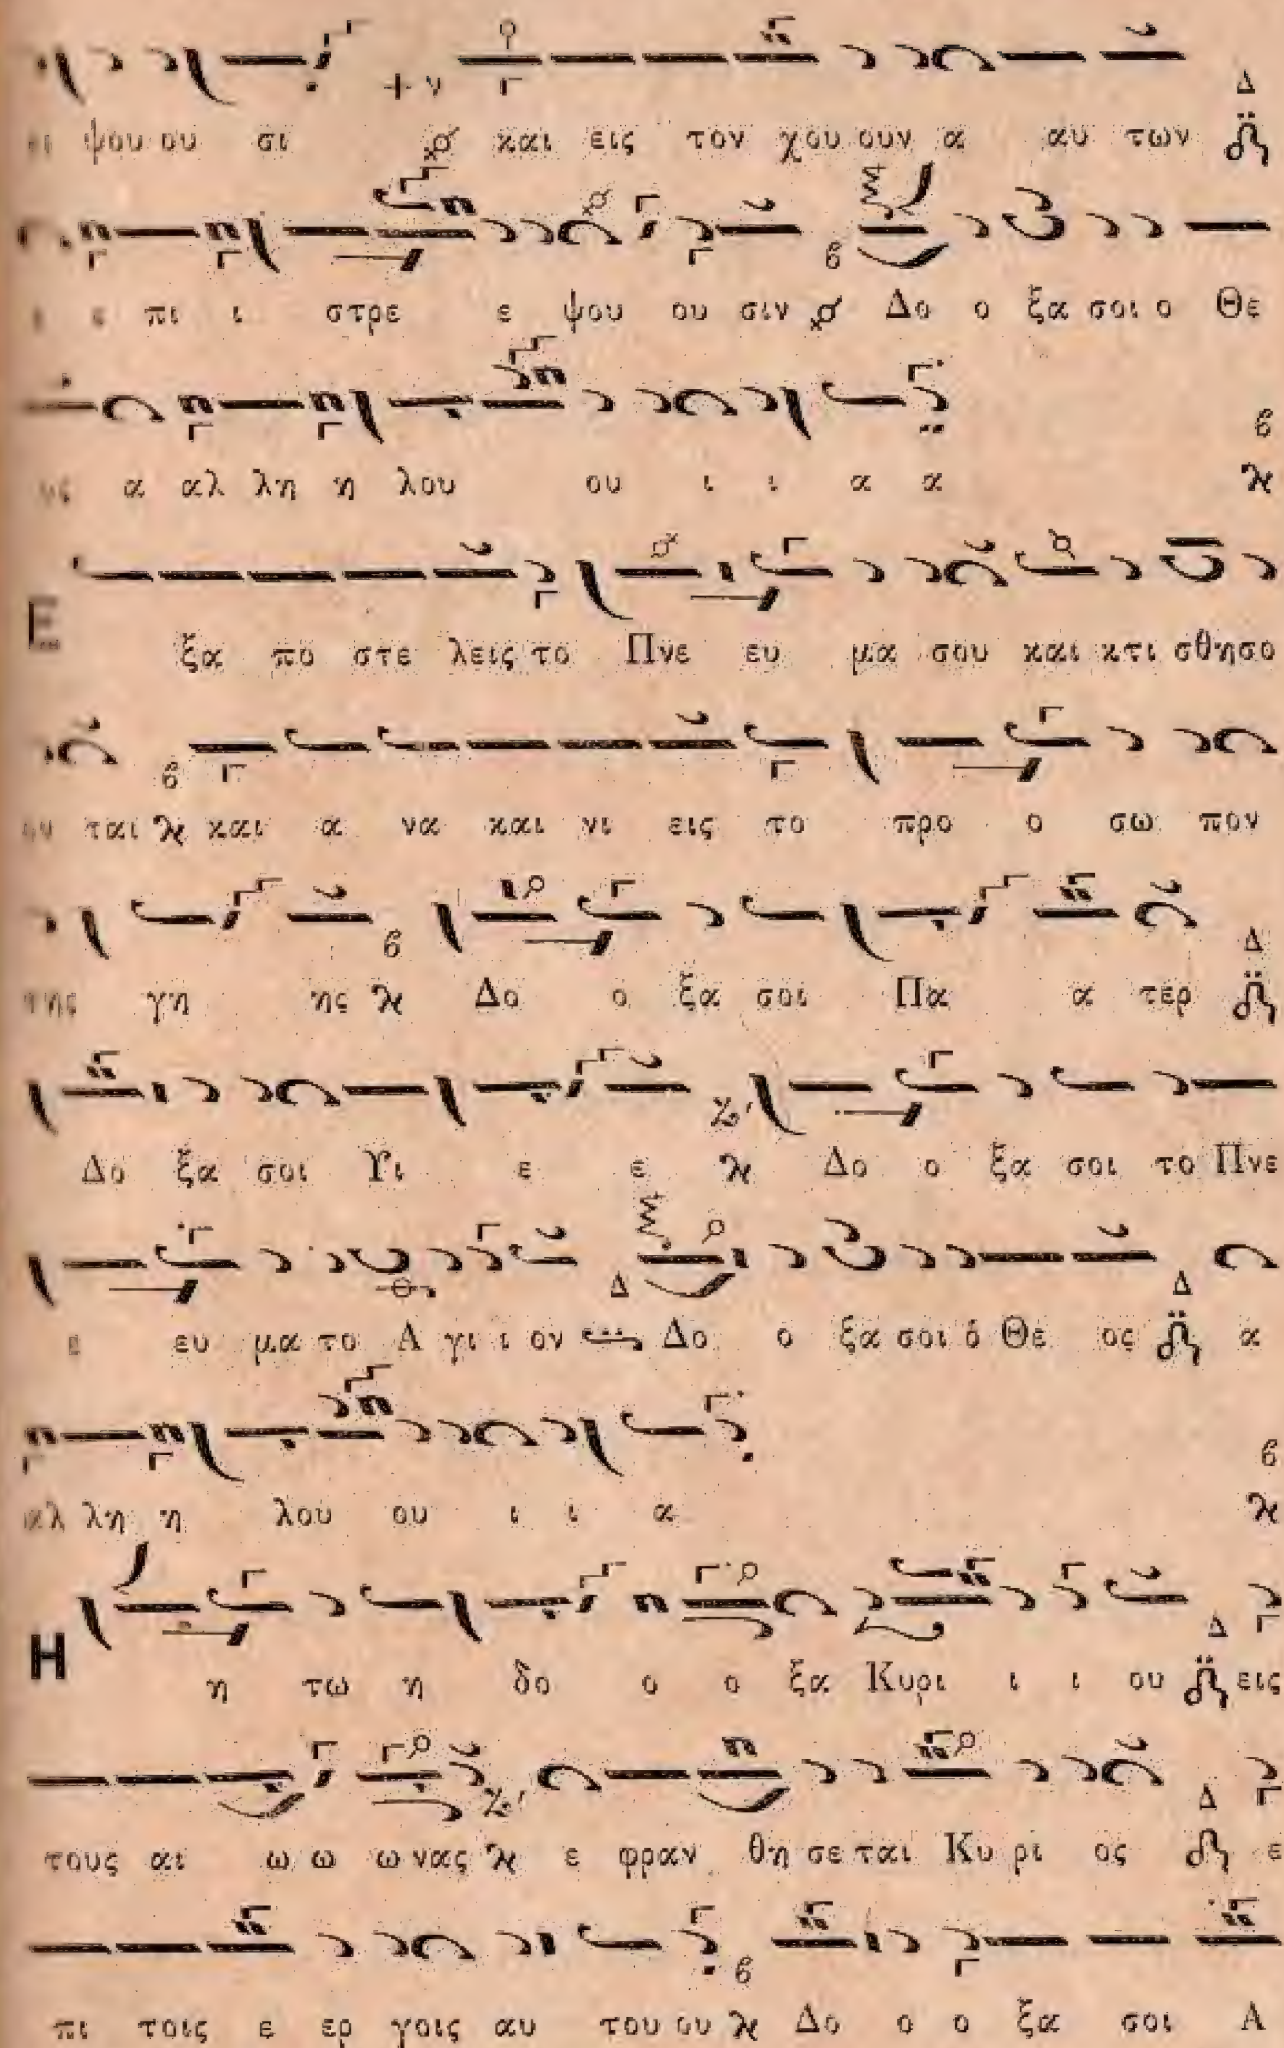 ψου ου σι και εις τον χου ουν α αυ των
ε πι ι στρε ε ψου ου σιν Δο ο ξα σοι ο Θε
ος α αλ λη η λου ου ι ι α α
Ε ξα πο στε λεις το Πνε ευ μα σου και κτι σθησο
ον ται και α να και νι εις το προ ο σω πον
της γη ης Δο ο ξα σοι Πα α τερ
Δο ξα σοι Υι ε ε Δο ο ξα σοι το Πνε
ε ευ μα το Α γι ι ον Δο ο ξα σοι ὁ Θε ος α
αλ λη η λου ου ι ι α
Η η τω η δο ο ο ξα Κυρι ι ι ου εις
τους αι ω ω ω νας ε φραν θη σε ται Κυ ρι ος ε
πι τοις ε ερ γοις αυ του ου Δο ο ο ξα σοι Α